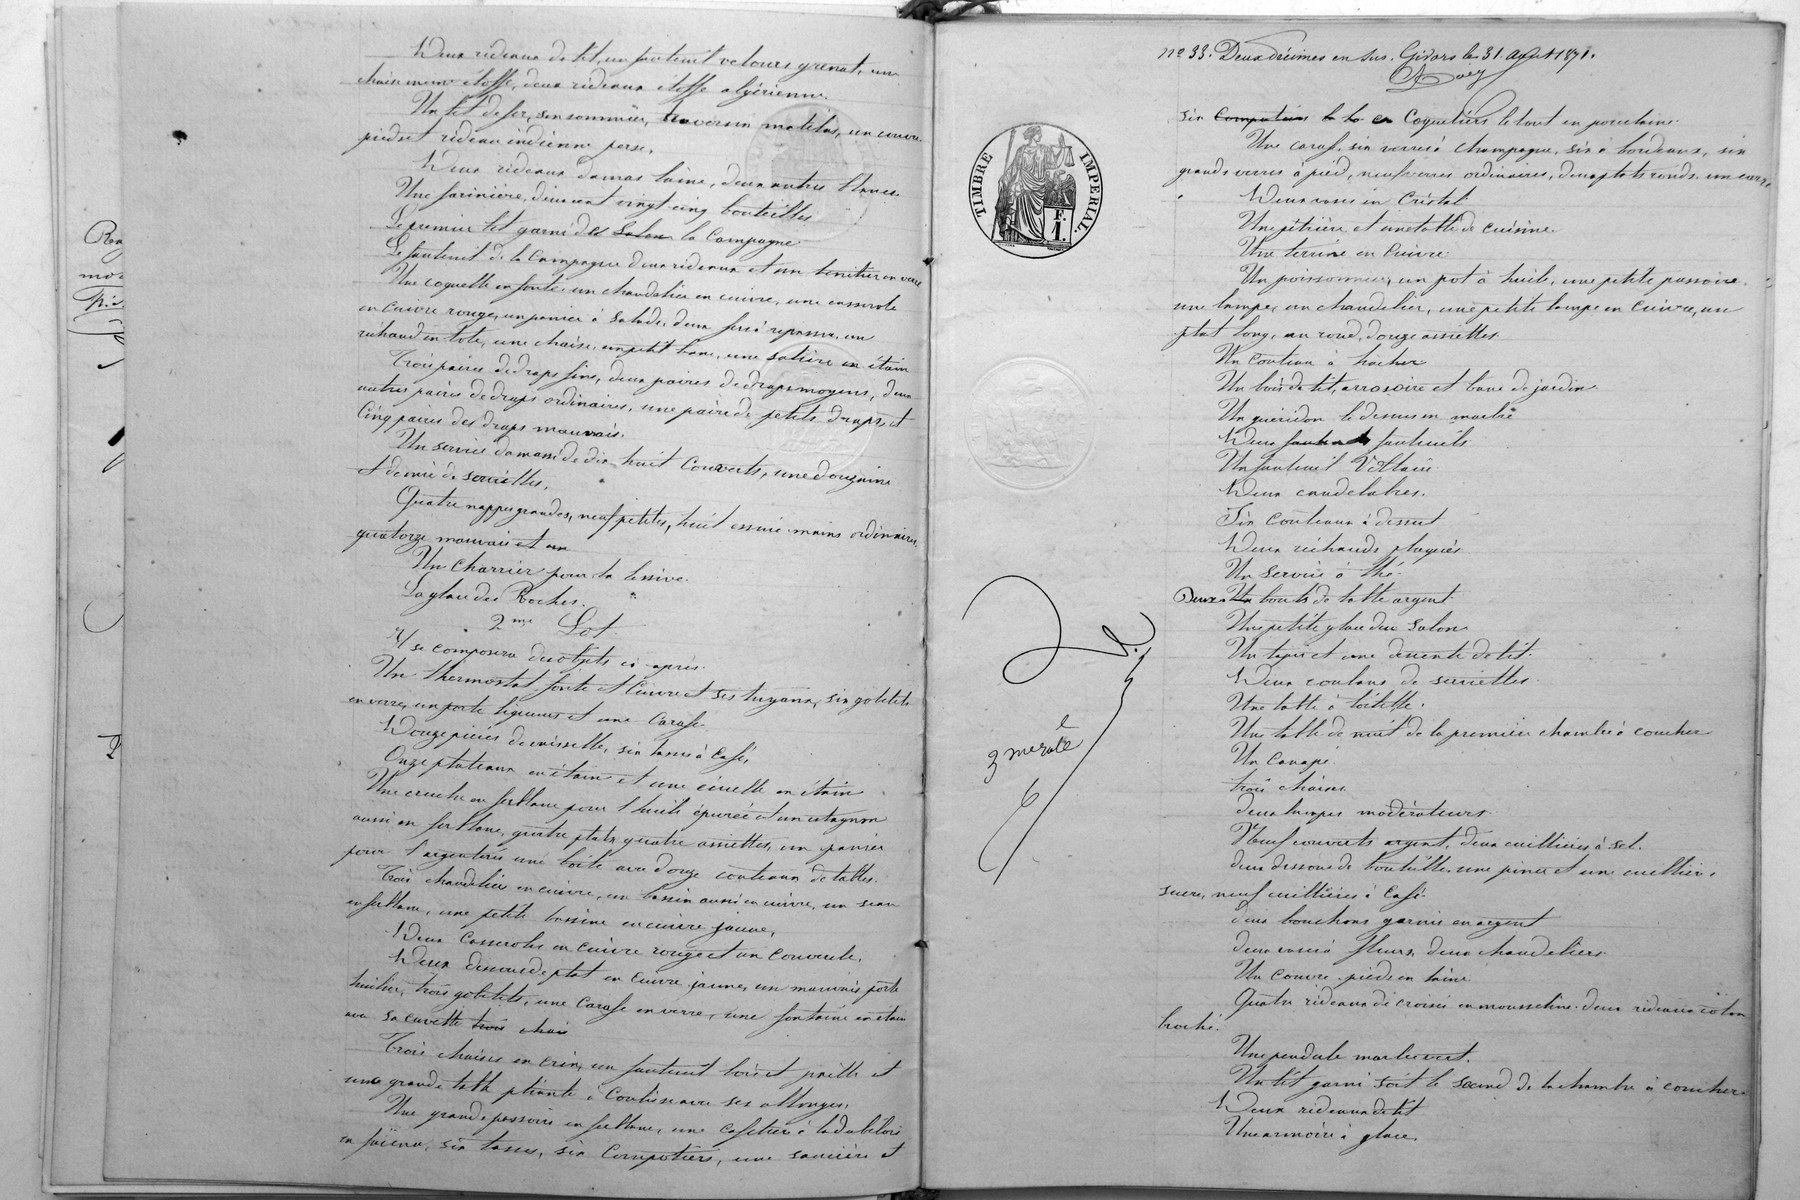 Deux rideaux de lit, un fauteuil velours grenat, une
chaise même étoffe, deux rideaux étoffe algérienne.
Un lit de fer, son sommier, traversin matelas, un couvre
pieds et rideau indienne perse.
Deux rideaux damas laine, deux autres blancs
Une farinière, deux cent vingt cinq bouteilles
Le premier lit garni de Salon la Campagne
Le fauteuil de la Campagne deux rideaux et un bénitier en verre
Une coquelle en fonte un chandelier en cuivre, une casserole
en cuivre rouge, un panier à salade, deux fers à repasser, un
réchaud en tôle, une chaise, un petit banc, une salière en étain
Trois paires de draps fins, deux paires de draps moyens, deux
autres paires de draps ordinaires, une paire de petits draps et
Cinq paires des draps mauvais.
Un service damassé de dix huit Couverts, une douzaine
et demie de serviettes,
Quatre nappes grandes, neuf petites, huit essuie-mains ordinaires,
quatorze mauvais et un
Un Charrier pour la lessive.
La glace des Roches.
2me Lot
Il se composera des objets ci-après.
Un thermostat fonte et Cuivre et ses tuyaux, six gobelets
en verre, un porte liqueurs et une Carafe
Douze pièces de vaisselle, six tasses à Café,
Onze plateaux en étain et une écuelle en étain
Une cruche en ferblanc pour l'huile épurée et un estagnon
aussi en ferblanc, quatre plats, quatre assiettes, un panier
pour l'argenterie une boîte avec douze couteaux de tables.
Trois chandeliers en cuivre, un bassin aussi en cuivre, un seau
en ferblanc, une petite bassine en cuivre jaune,
Deux Casseroles en Cuivre rouge et un Couvercle,
Deux dessous de plat en Cuivre jaune, un mauvais porte
huilier, trois gobelets, une Carafe en verre, une fontaine en étain
avec sa cuvette trois chai
Trois chaises en crin, un fauteuil bois et paille et
une grande table pliante à Coulisse avec ses allonges,
Une grande passoire en ferblanc, une Cafetière à la dubelloi
en faïence, six tasses, six Compotiers, une saucière et
no 33. Deux décimes en sus. Givors le 31 août 1871.
TIMBRE IMPERIAL.
F.
1.
six Compotiers Coquetiers le tout en porcelaine.
Une carafe six verres à Champagne, six à bordeaux, six
grands verres à pied, neuf verres ordinaires, deux plats ronds
Deux vases en Cristal
Une pétrière et une table de Cuisine.
Une terrine en Cuivre
Un poissonnier, un pot à huile, une petite passoire,
une lampe, un chandelier, une petite lampe en Cuivre, un
plat long, un rond, douze assiettes
Un Couteau à hacher
Un bois de lit, arrosoire et banc de jardin
Un guéridon le dessus en marbre
Deux fauteuils
Un fauteuil Voltaire
Deux candelabres.
Six Couteaux à dessert
Deux réchauds plaqués
Un Service à thé.
Deux Un bouts de table argent
Une petite glace du Salon
Un tapis et une descente de lit.
Deux rouleaux de serviettes.
Une table à toilette.
Une table de nuit de la première chambre à coucher
Un Canapé
trois chaises
deux lampes modérateurs
Neuf couverts argent, deux cuillières à sel.
deux dessous de bouteilles, une pince et une cuillière
sucre, neuf cuillières à Café
deux bouchons garnis en argent
deux vases à fleurs, deux chandeliers
Un Couvre-pieds en laine
Quatre rideaux de croisée en mousseline, deux rideaux coton
broché.
Une pendule marbre vert.
Un lit garni soit le second de la chambre à coucher
Deux rideaux de lit
Une armoire à glace,
3me rôle